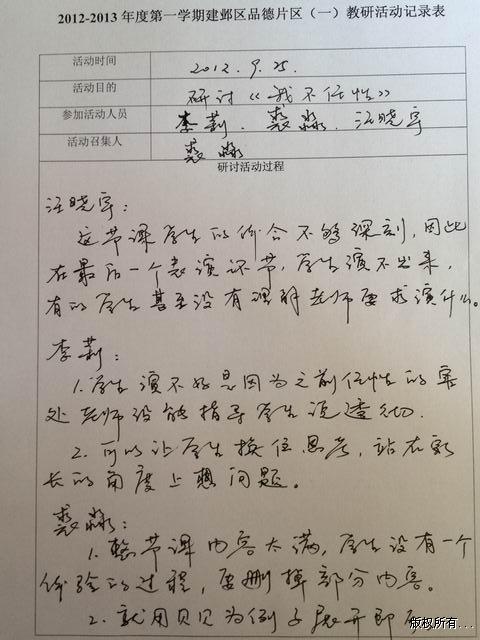 2012-2013年度第一学期建邺区品德片区（一）教研活动记录表
活动时间 2012.9.25.
活动目的 研讨《我不任性》
参加活动人员 李莉、裘淼、汪晓宇
活动召集人 裘淼
研讨活动过程
汪晓宇：
这节课学生的体会不够深刻，因此
在最后一个表演环节，学生演不出来，
有的学生甚至没有理解老师要求演什么。
李莉：
1.学生演不好是因为之前任性的害
处老师没能指导学生说透彻.
2.可以让学生换位思考，站在家
长的角度上想问题。
裘淼：
1.整节课内容太满，学生没有一个
体验的过程，要删掉部分内容。
2.就用贝贝为例子展开即可
版权所有...